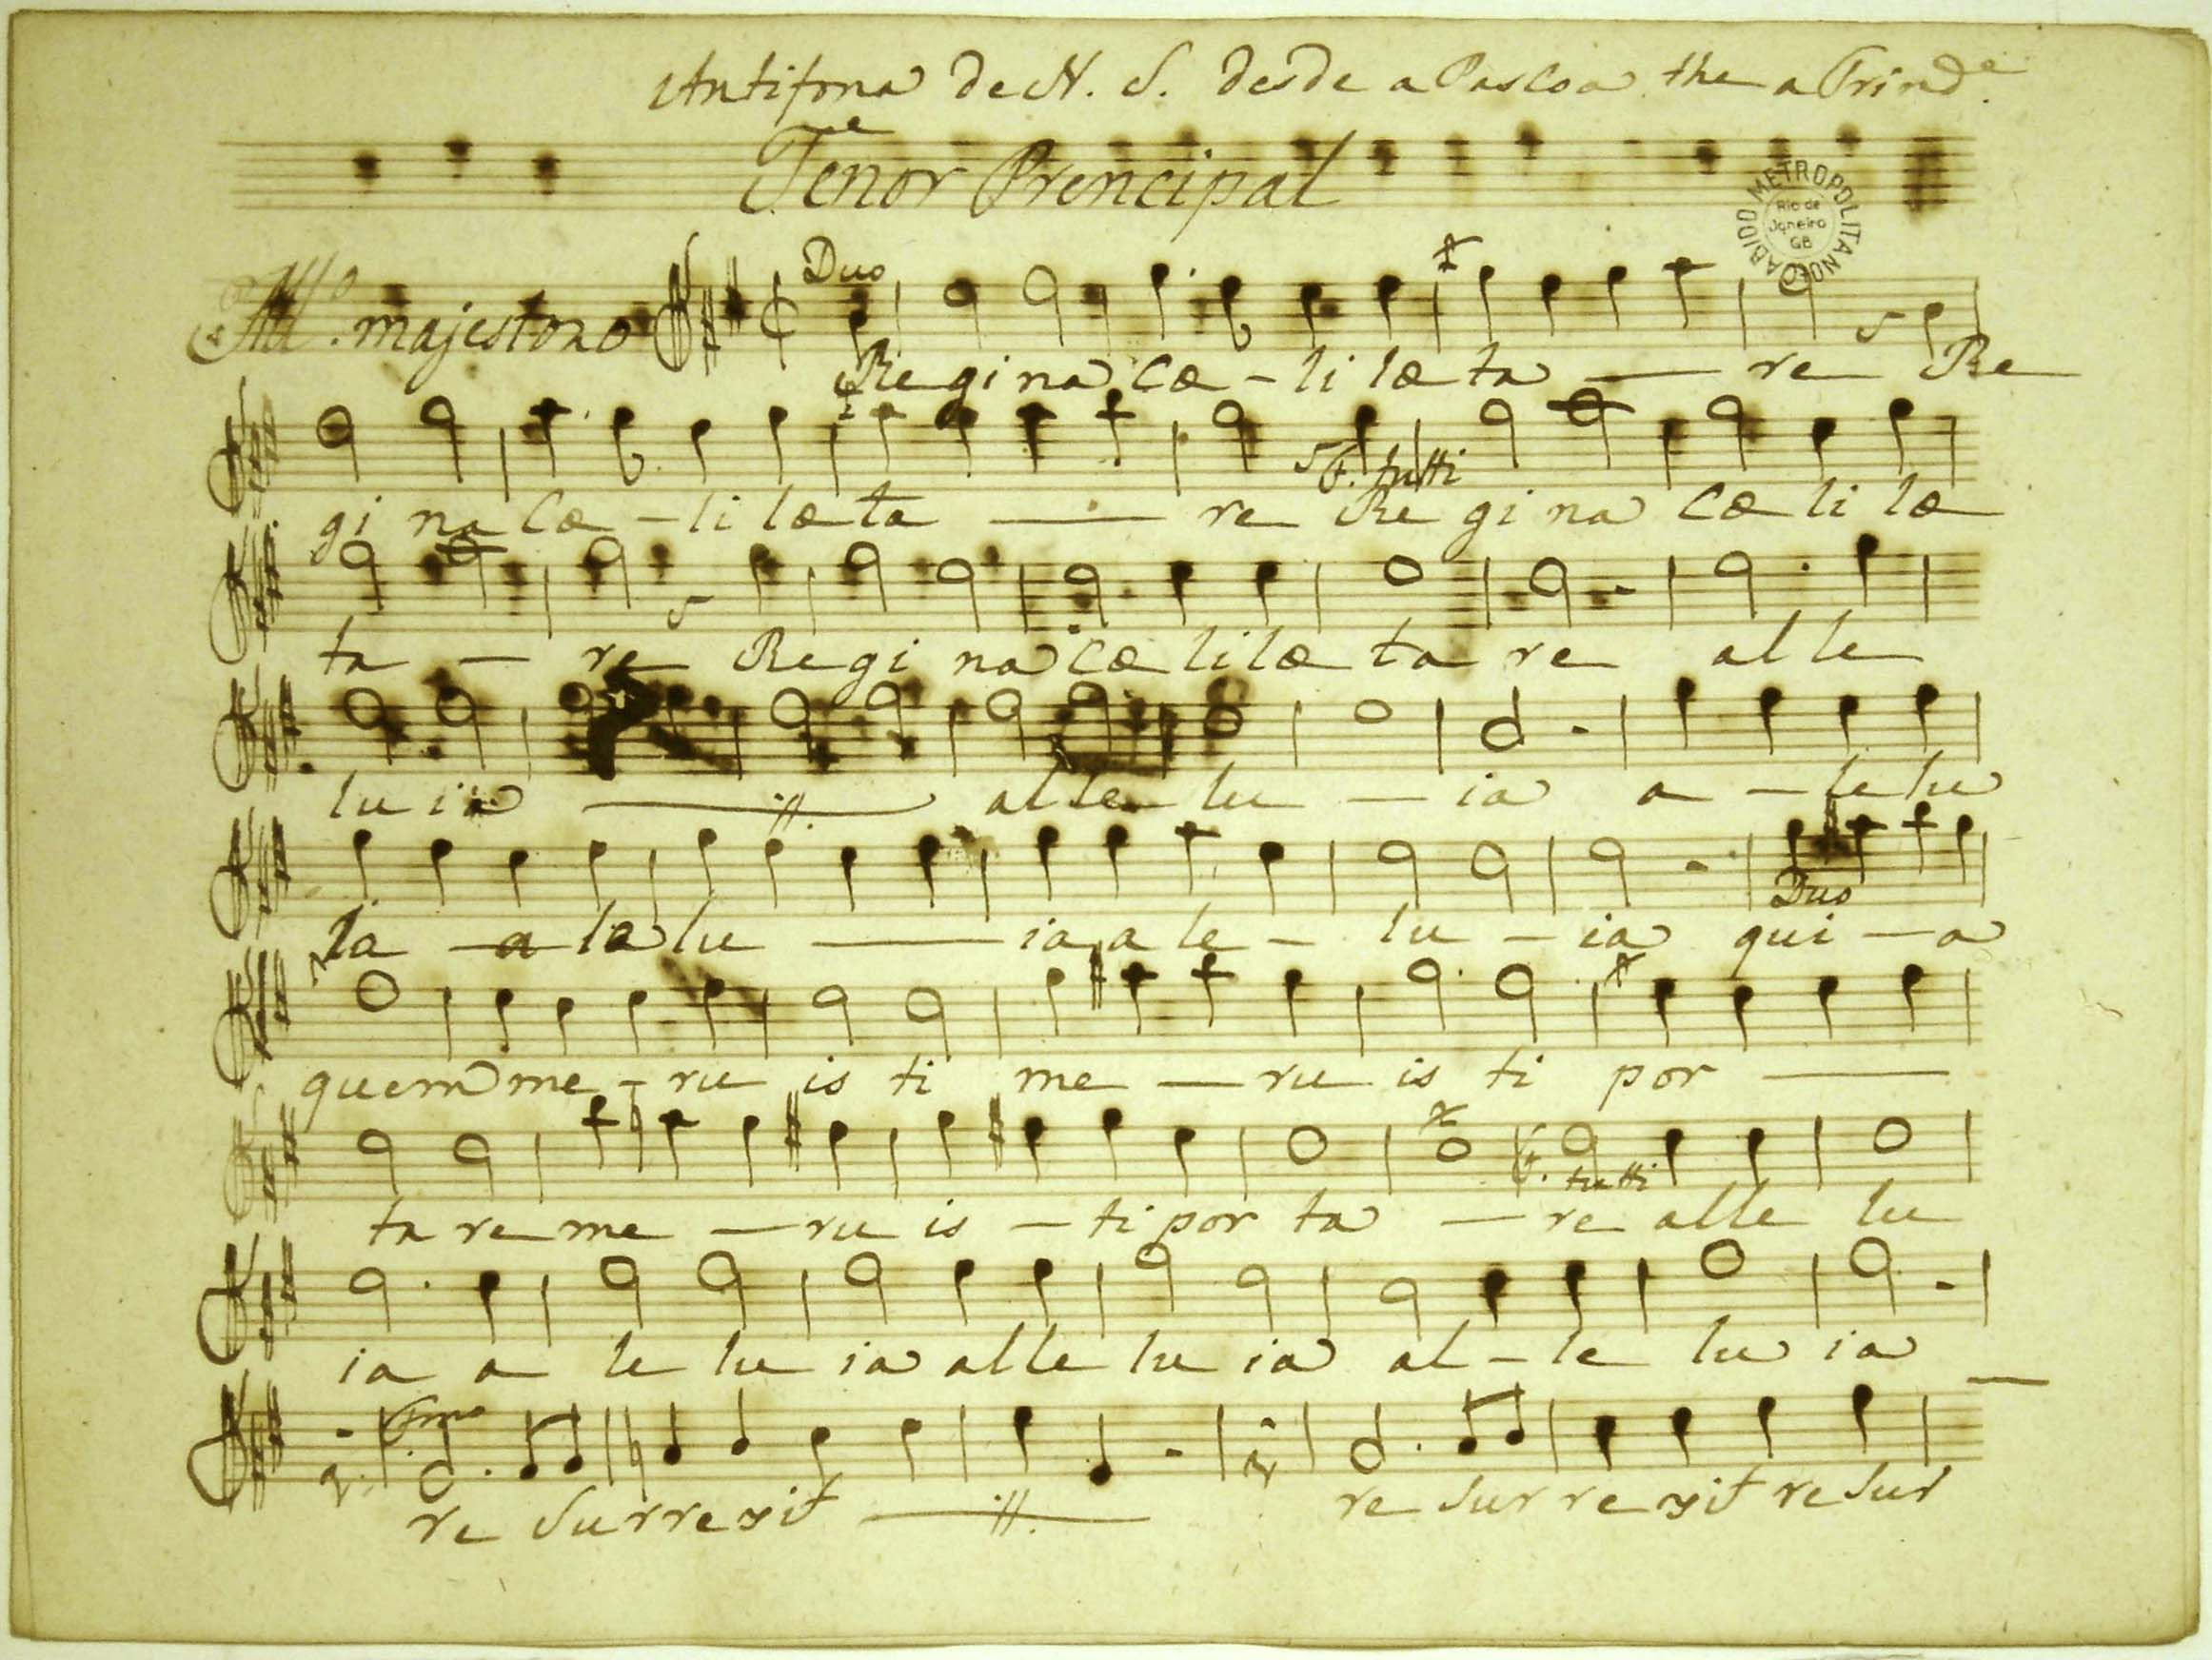 Antifona de N. S. desde a Pascoa the a Trind.e
Tenor Prencipal
CABIDO METROPOLITANO
Rio de
Janeiro
GB
All.o majestozo
Duo
Regina cæ - li læ ta — re Re
F. tutti
gi na cæ - li læ ta — re Re gi na cæ li læ
ta — re Re gi na cæ li læ ta re al le
lu ia — al le lu — ia a - le lu
Duo
ia - a le lu — ia a le - lu - ia qui - a
quem me - ru is ti me — ru is ti por —
F. tutti
ta re me — ru is - ti por ta — re alle lu
ia a le lu ia alle lu ia al - le lu ia
re sur re xit — re sur re xit re sur